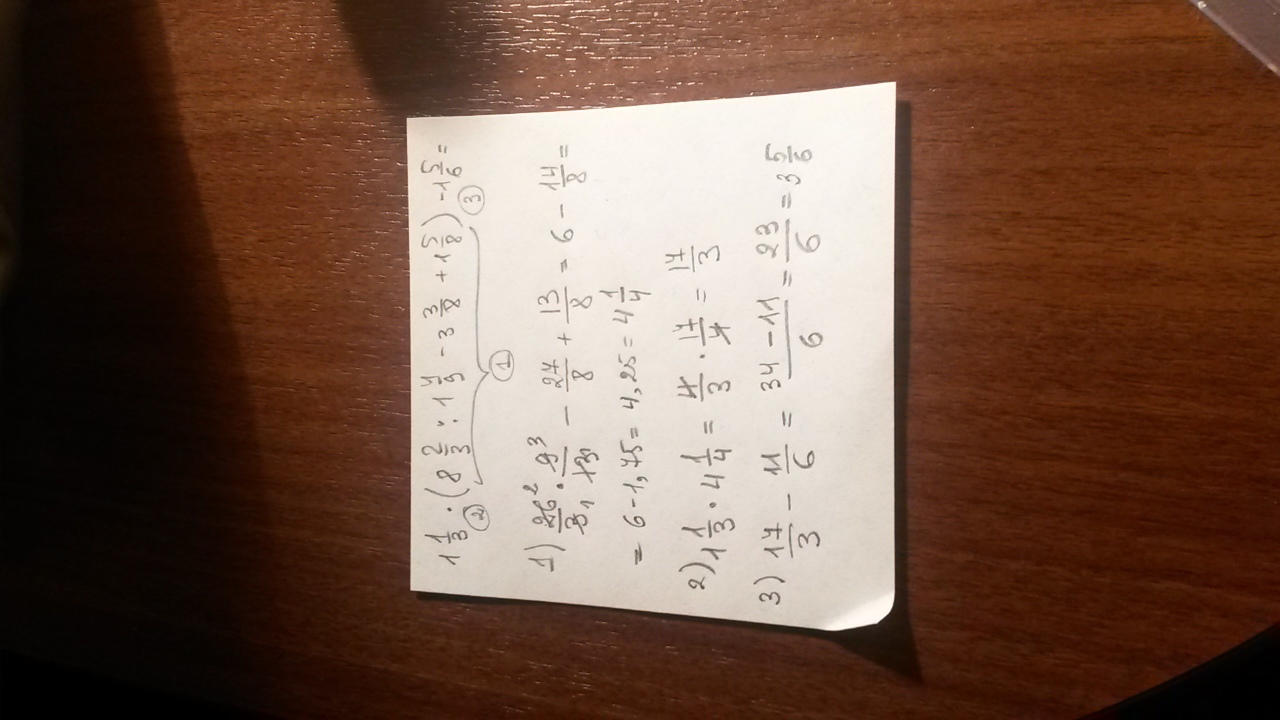 1 1/3 · (8 2/3 : 1 4/9 - 3 3/8 + 1 5/8) - 1 5/6 =
② ① ③
1) 26²/3₁ · 9³/13₁ - 27/8 + 13/8 = 6 - 14/8 =
= 6 - 1,75 = 4,25 = 4 1/4
2) 1 1/3 · 4 1/4 = 4/3 · 17/4 = 17/3
3) 17/3 - 11/6 = 34 - 11/6 = 23/6 = 3 5/6